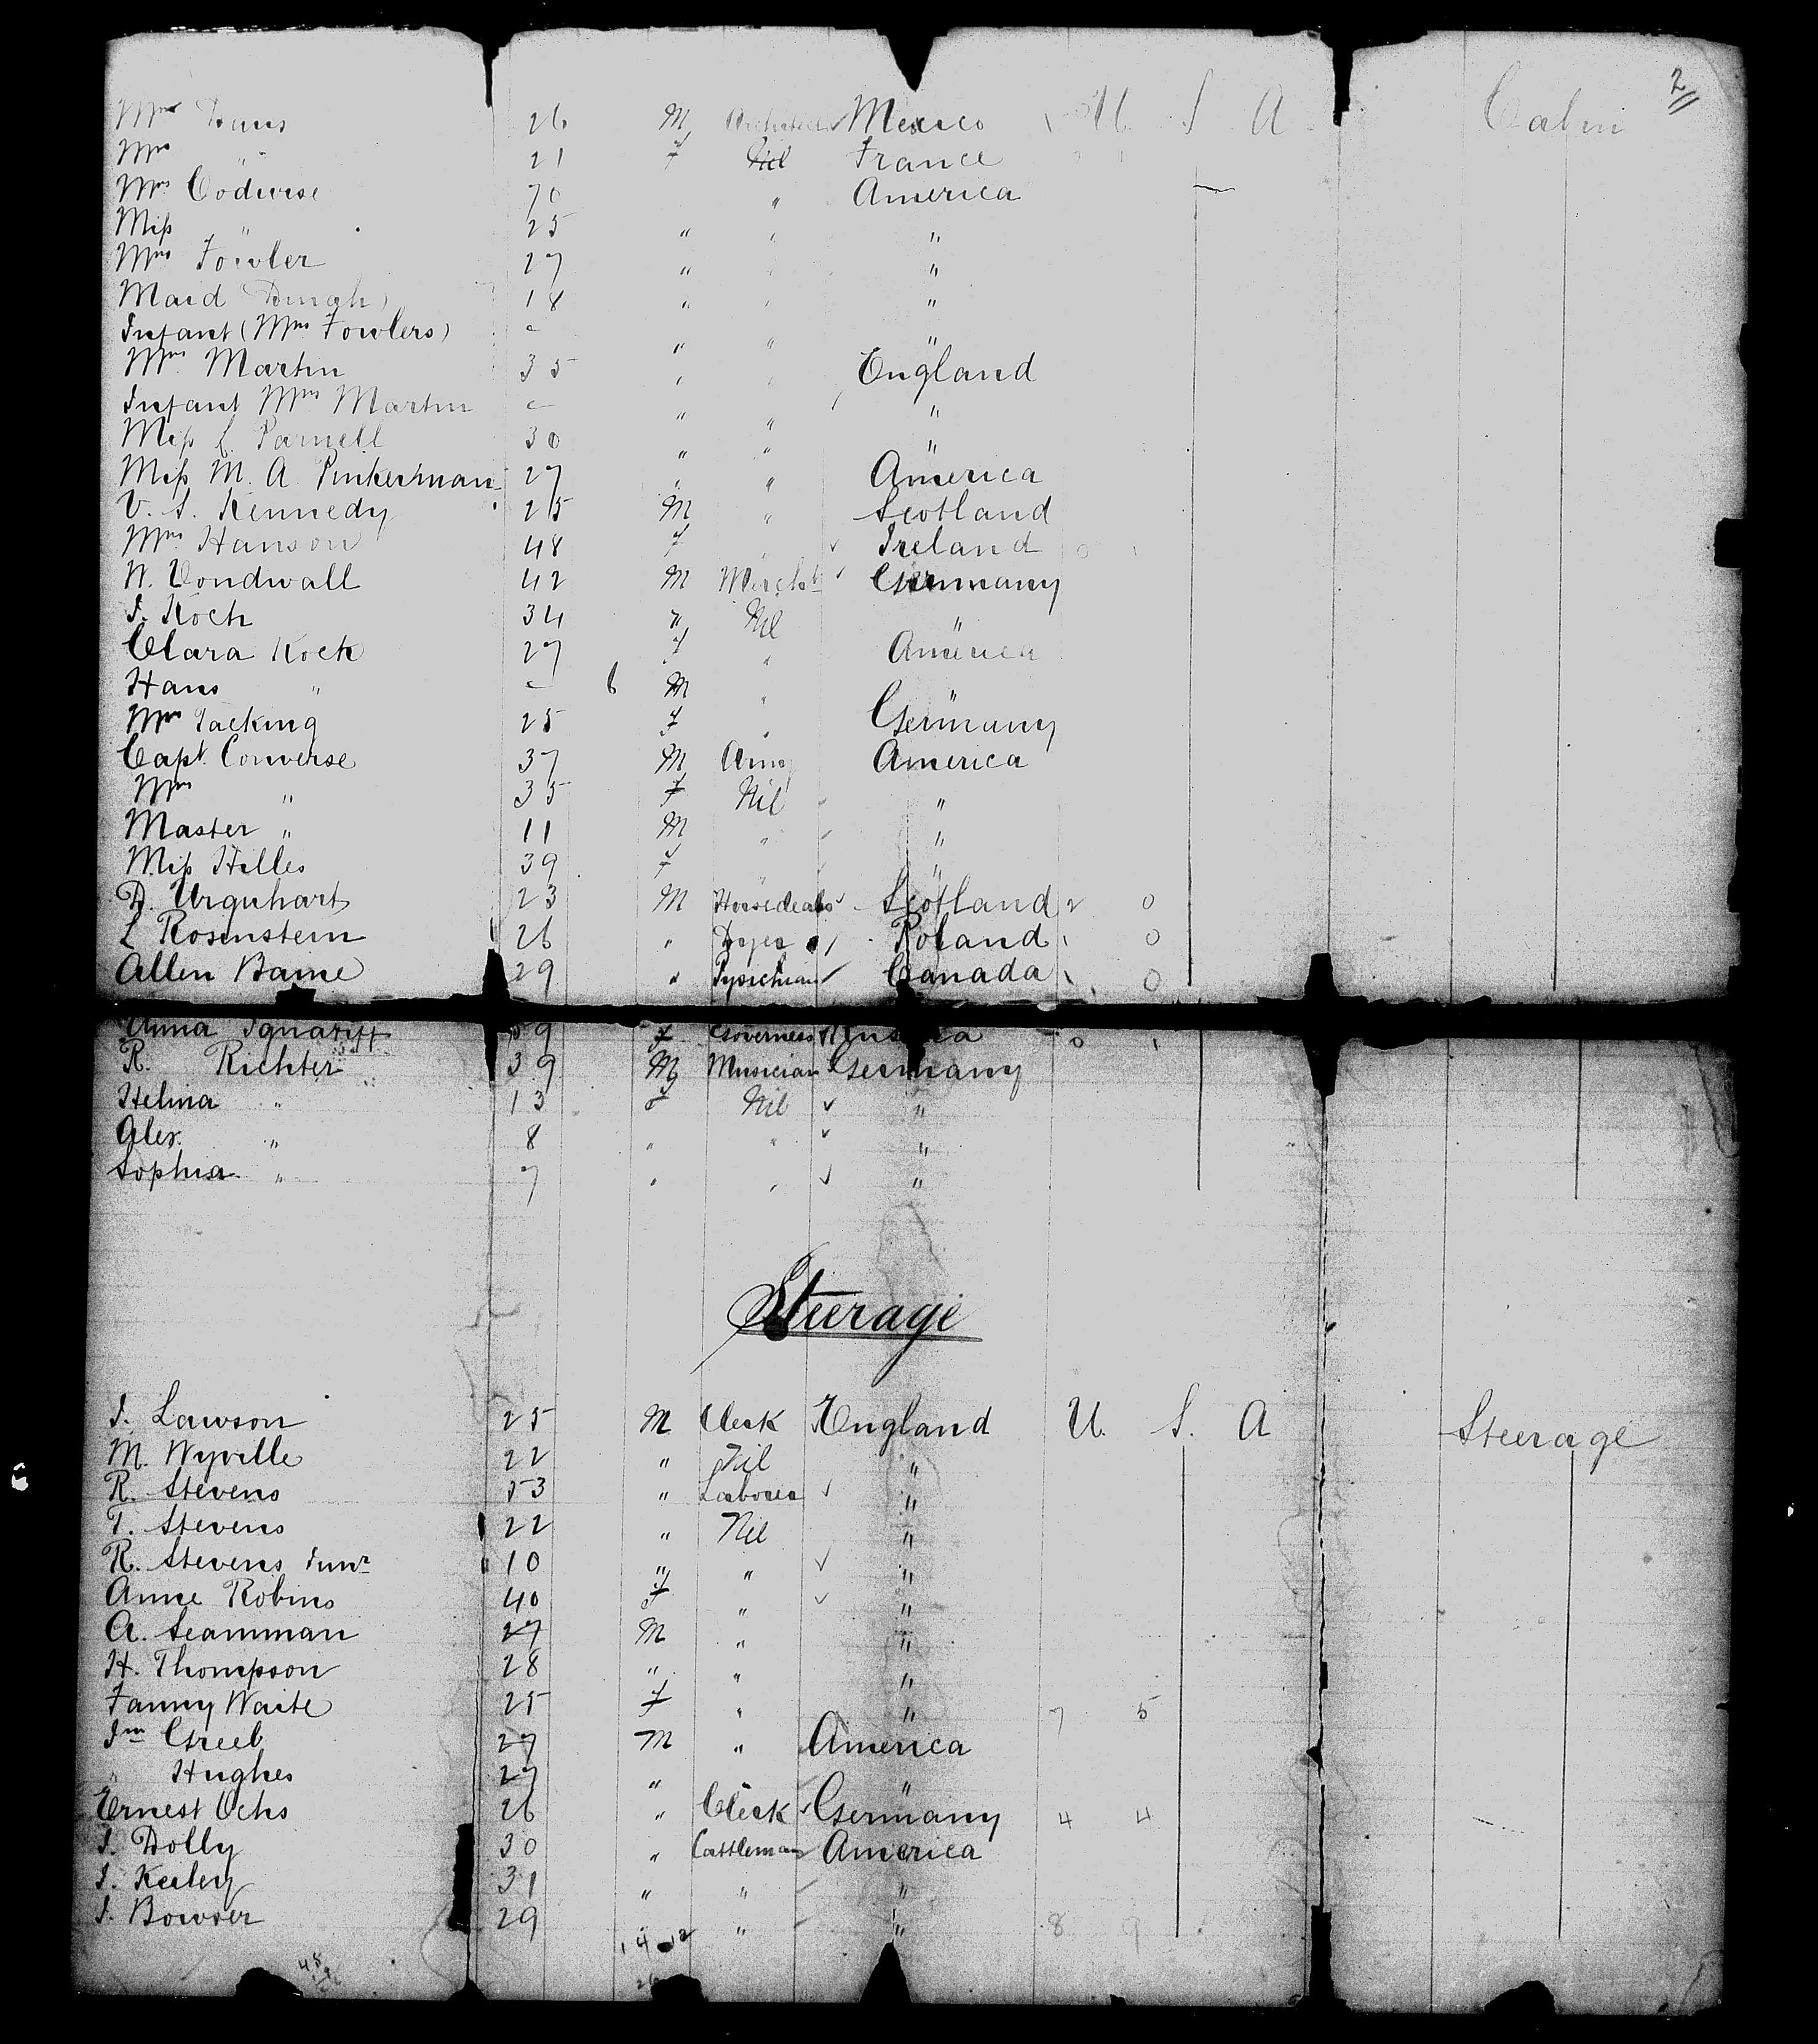 2
Mrs 26 M Mexico U S A Cabin
Mrs " 21 f Nil France
Mrs Codwise 70 " America
Miss " 25 " " "
Mrs Fowler 27 " " "
Maid (Dinah) 18 " " "
Infant (Mrs Fowlers) - " " "
Mrs Martin 35 " " England
Infant Mrs Martin - " " "
Miss L Parnell 30 " " "
Miss M. A. Pinkerman 27 " " America
V. S. Kennedy 25 M " Scotland
Mrs Hanson 48 f " Ireland 0 1
N. Vondwall 42 M Mercht Germany
J. Koch 34 " Nil "
Clara Koch 27 f " America
Hans " - 6 M " "
Mrs Jacking 25 f " Germany
Capt. Converse 37 M Army America
Mrs " 35 f Nil "
Master " 11 M " "
Miss Hilles 39 f " "
D. Urquhart 23 M Scotland 2 0
L Rosenstein 26 " Poland 1 0
Allen Baine 29 " Pysichian Canada 1 0
Anna Ignatiff 59 f Governess 0 1
R. Richter 39 M Musician Germany
Helina " 13 f Nil "
Alex. " 8 " " "
Sophia " 7 " " "
Steerage
J. Lawson 25 M Clerk England U. S. A Steerage
M. Wyville 22 " Nil "
R. Stevens 53 " Laborer "
T. Stevens 22 " Nil "
R. Stevens Junr 10 " " "
Anne Robins 40 f " "
A. Seamman 27 M " "
H. Thompson 28 " " "
Fanny Waite 25 f " " 7 5
Jn Greeb 27 M " America
" Hughes 27 " " "
Ernest Ochs 26 " Clerk Germany 4 4
J. Dolly 30 " Cattleman America
J. Keeley 31 " " "
J. Bowser 29 " " " 8 9